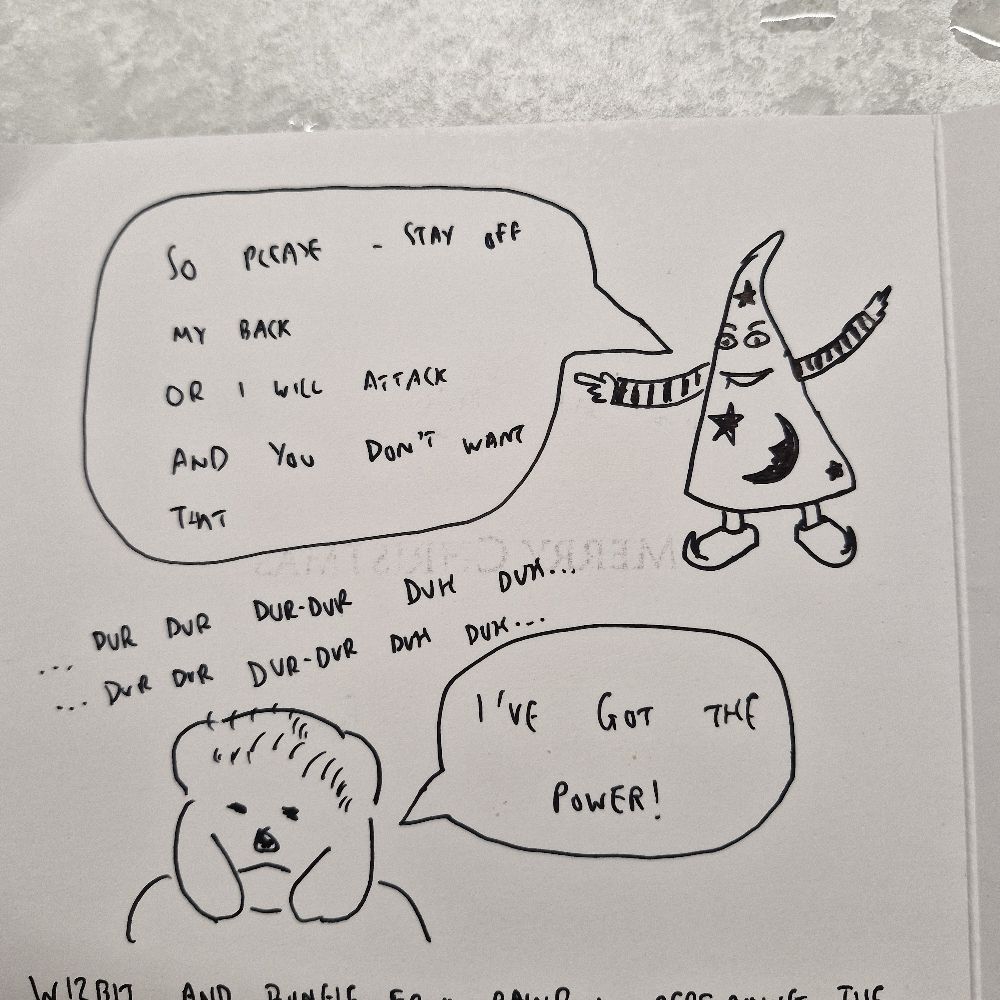 SO PLEASE - STAY OFF
MY BACK
OR I WILL ATTACK
AND YOU DON'T WANT
THAT
MERRY CHRISTMAS
... DUR DUR DUR-DUR DUH DUH...
... DUR DUR DUR-DUR DUH DUH...
I'VE GOT THE
POWER!
WIZBIT AND BUNGLE FROM THE